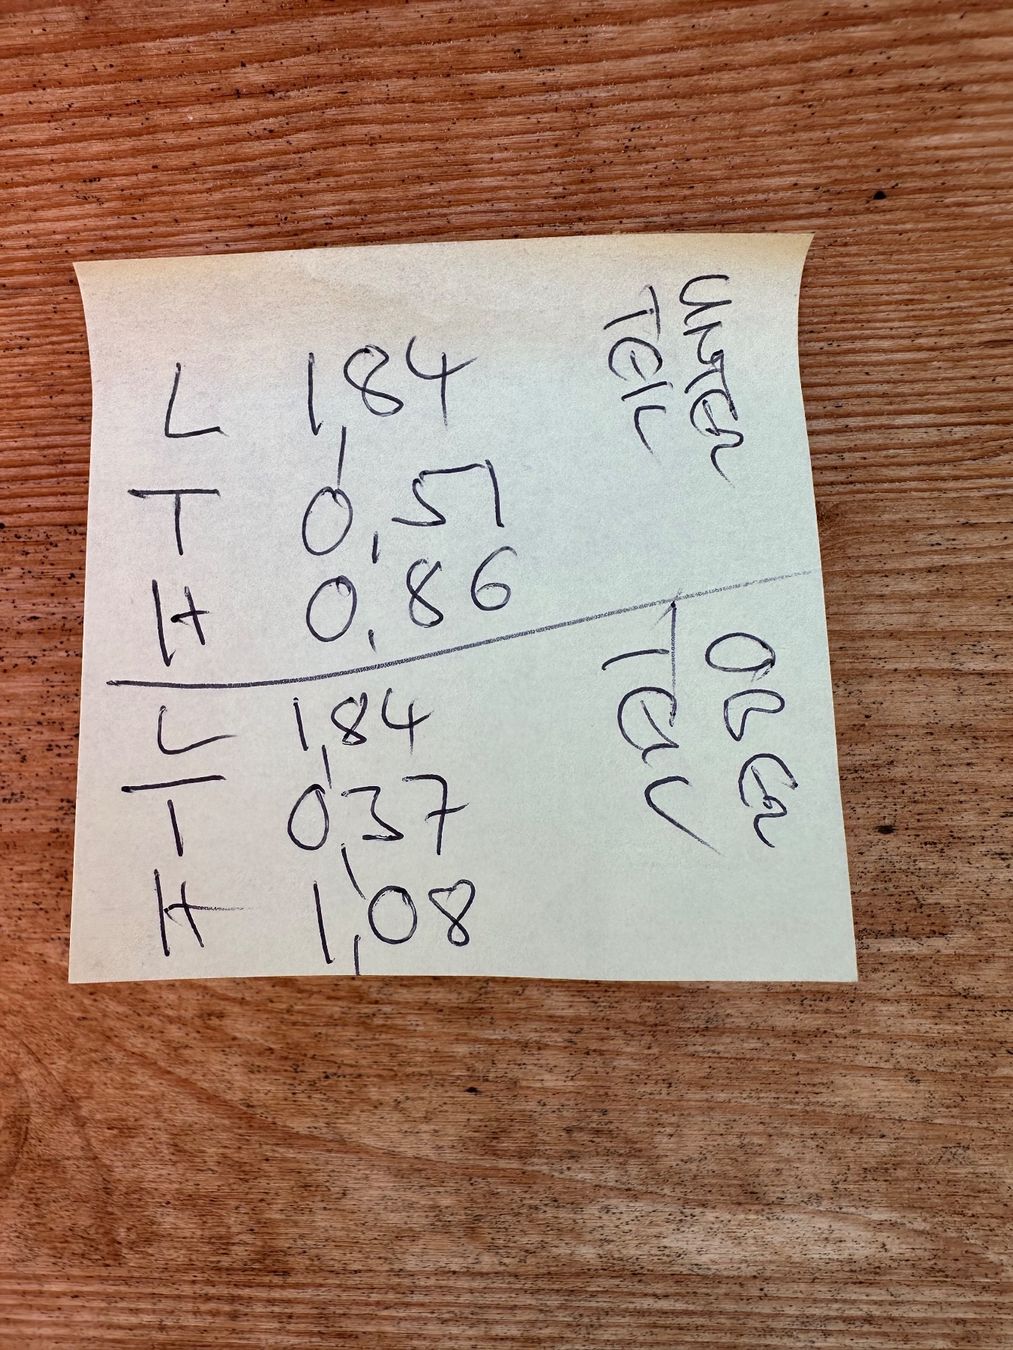 L 1,84
T 0,51
H 0,86
UNTER
TEIL
L 1,84
T 0,37
H 1,08
OBER
TEIL